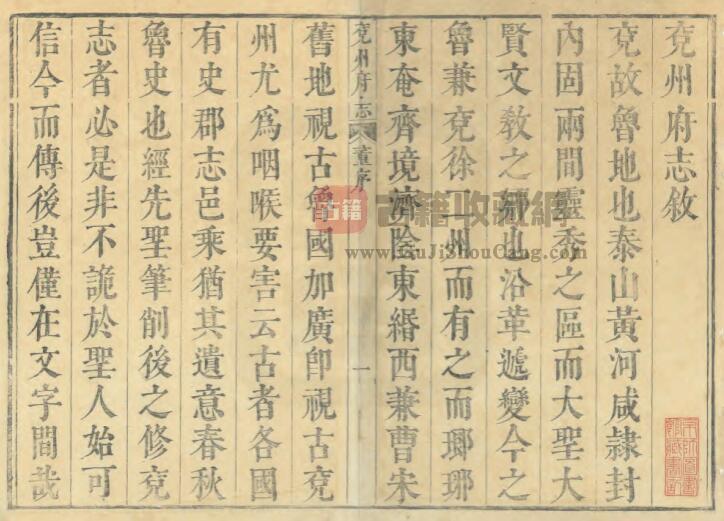 兗州府志敘
兗故魯地也泰山黃河咸隸封
內固兩間靈秀之區而大聖大
賢文教之鄉也沿革遞變今之
魯兼兗徐二州而有之而瑯琊
東奄齊境濟陰東緡西兼曹宋
兗州府志 董序 一
舊地視古魯國加廣卽視古兗
州尤爲咽喉要害云古者各國
有史郡志邑乘猶其遺意春秋
魯史也經先聖筆削後之修兗
志者必是非不詭於聖人始可
信今而傳後豈僅在文字間哉
古籍
古籍收藏網
www.GuJiShouCang.com